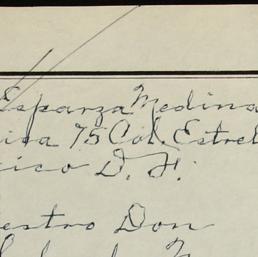 Esparza Medina
isa 75 Col. Estrel
xico D. F.
estro Don